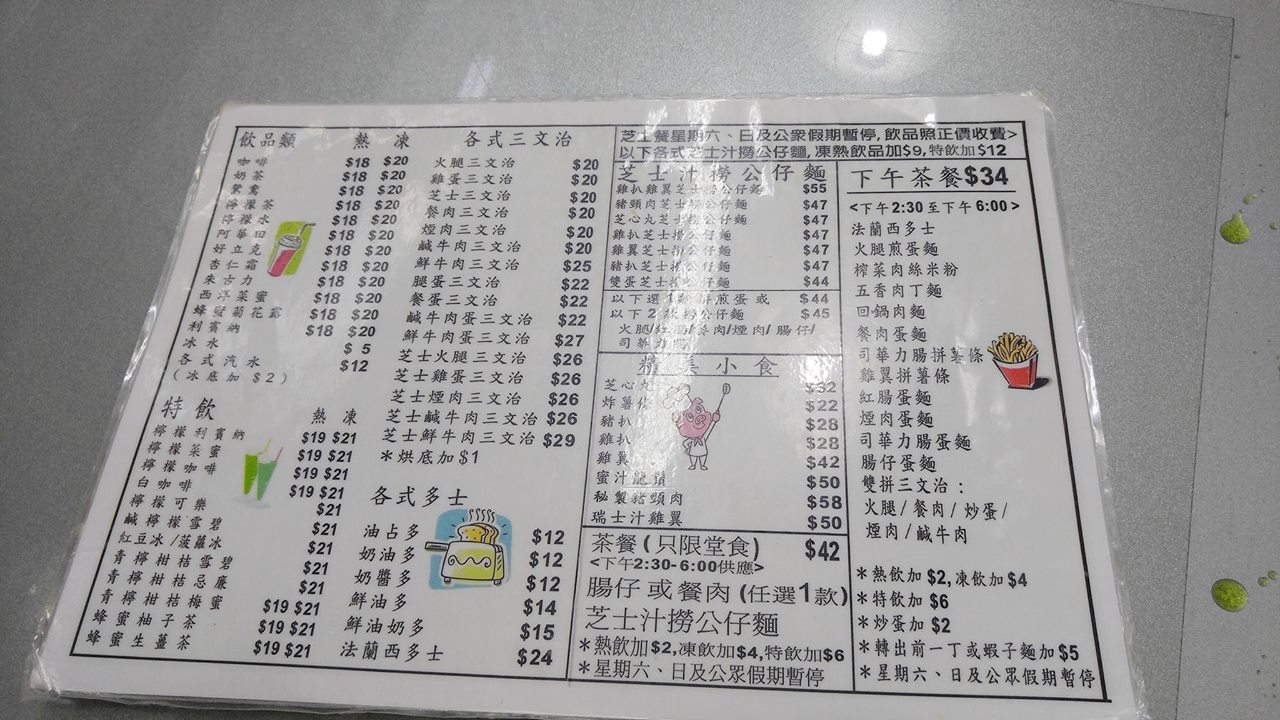 飲品類 熱 凍
咖啡 $18 $20
奶茶 $18 $20
鴛鴦 $18 $20
檸檬茶 $18 $20
檸檬水 $18 $20
阿華田 $18 $20
好立克 $18 $20
杏仁霜 $18 $20
朱古力 $18 $20
西洋菜蜜 $18 $20
蜂蜜菊花露 $18 $20
利賓納 $18 $20
冰水 $5
各式汽水 $12
(冰底加 $2)
特飲 熱 凍
檸檬利賓納 $19 $21
檸檬菜蜜 $19 $21
檸檬咖啡 $19 $21
白咖啡 $19 $21
檸檬可樂 $21
鹹檸檬雪碧 $21
紅豆冰/菠蘿冰 $21
青檸柑桔雪碧 $21
青檸柑桔忌廉 $21
青檸柑桔梅蜜 $19 $21
蜂蜜柚子茶 $19 $21
蜂蜜生薑茶 $19 $21
各式三文治
火腿三文治 $20
雞蛋三文治 $20
芝士三文治 $20
餐肉三文治 $20
煙肉三文治 $20
鹹牛肉三文治 $20
鮮牛肉三文治 $25
腿蛋三文治 $22
餐蛋三文治 $22
鹹牛肉蛋三文治 $22
鮮牛肉蛋三文治 $27
芝士火腿三文治 $26
芝士雞蛋三文治 $26
芝士煙肉三文治 $26
芝士鹹牛肉三文治 $26
芝士鮮牛肉三文治 $29
*烘底加$1
各式多士
油占多 $12
奶油多 $12
奶醬多 $12
鮮油多 $14
鮮油奶多 $15
法蘭西多士 $24
芝士餐星期六、日及公眾假期暫停,飲品照正價收費>
以下各式芝士汁撈公仔麵,凍熱飲品加$9,特飲加$12
芝士汁撈公仔麵
雞扒雞翼芝士撈公仔麵 $55
豬頸肉芝士撈公仔麵 $47
芝心丸芝士撈公仔麵 $47
雞扒芝士撈公仔麵 $47
雞翼芝士撈公仔麵 $47
豬扒芝士撈公仔麵 $47
雙蛋芝士撈公仔麵 $44
以下選1款拼煎蛋或 $44
以下2款撈公仔麵 $45
火腿/紅腸/餐肉/煙肉/腸仔/
司華力腸
精美小食
芝心丸 $32
炸薯條 $22
豬扒 $28
雞扒 $28
雞翼 $42
蜜汁龍鬚 $50
秘製豬頸肉 $58
瑞士汁雞翼 $50
茶餐(只限堂食) $42
<下午2:30-6:00供應>
腸仔或餐肉(任選1款)
芝士汁撈公仔麵
*熱飲加$2,凍飲加$4,特飲加$6
*星期六、日及公眾假期暫停
下午茶餐$34
<下午2:30至下午6:00>
法蘭西多士
火腿煎蛋麵
榨菜肉絲米粉
五香肉丁麵
回鍋肉麵
餐肉蛋麵
司華力腸拼薯條
雞翼拼薯條
紅腸蛋麵
煙肉蛋麵
司華力腸蛋麵
腸仔蛋麵
雙拼三文治:
火腿/餐肉/炒蛋/
煙肉/鹹牛肉
*熱飲加$2,凍飲加$4
*特飲加$6
*炒蛋加$2
*轉出前一丁或蝦子麵加$5
*星期六、日及公眾假期暫停